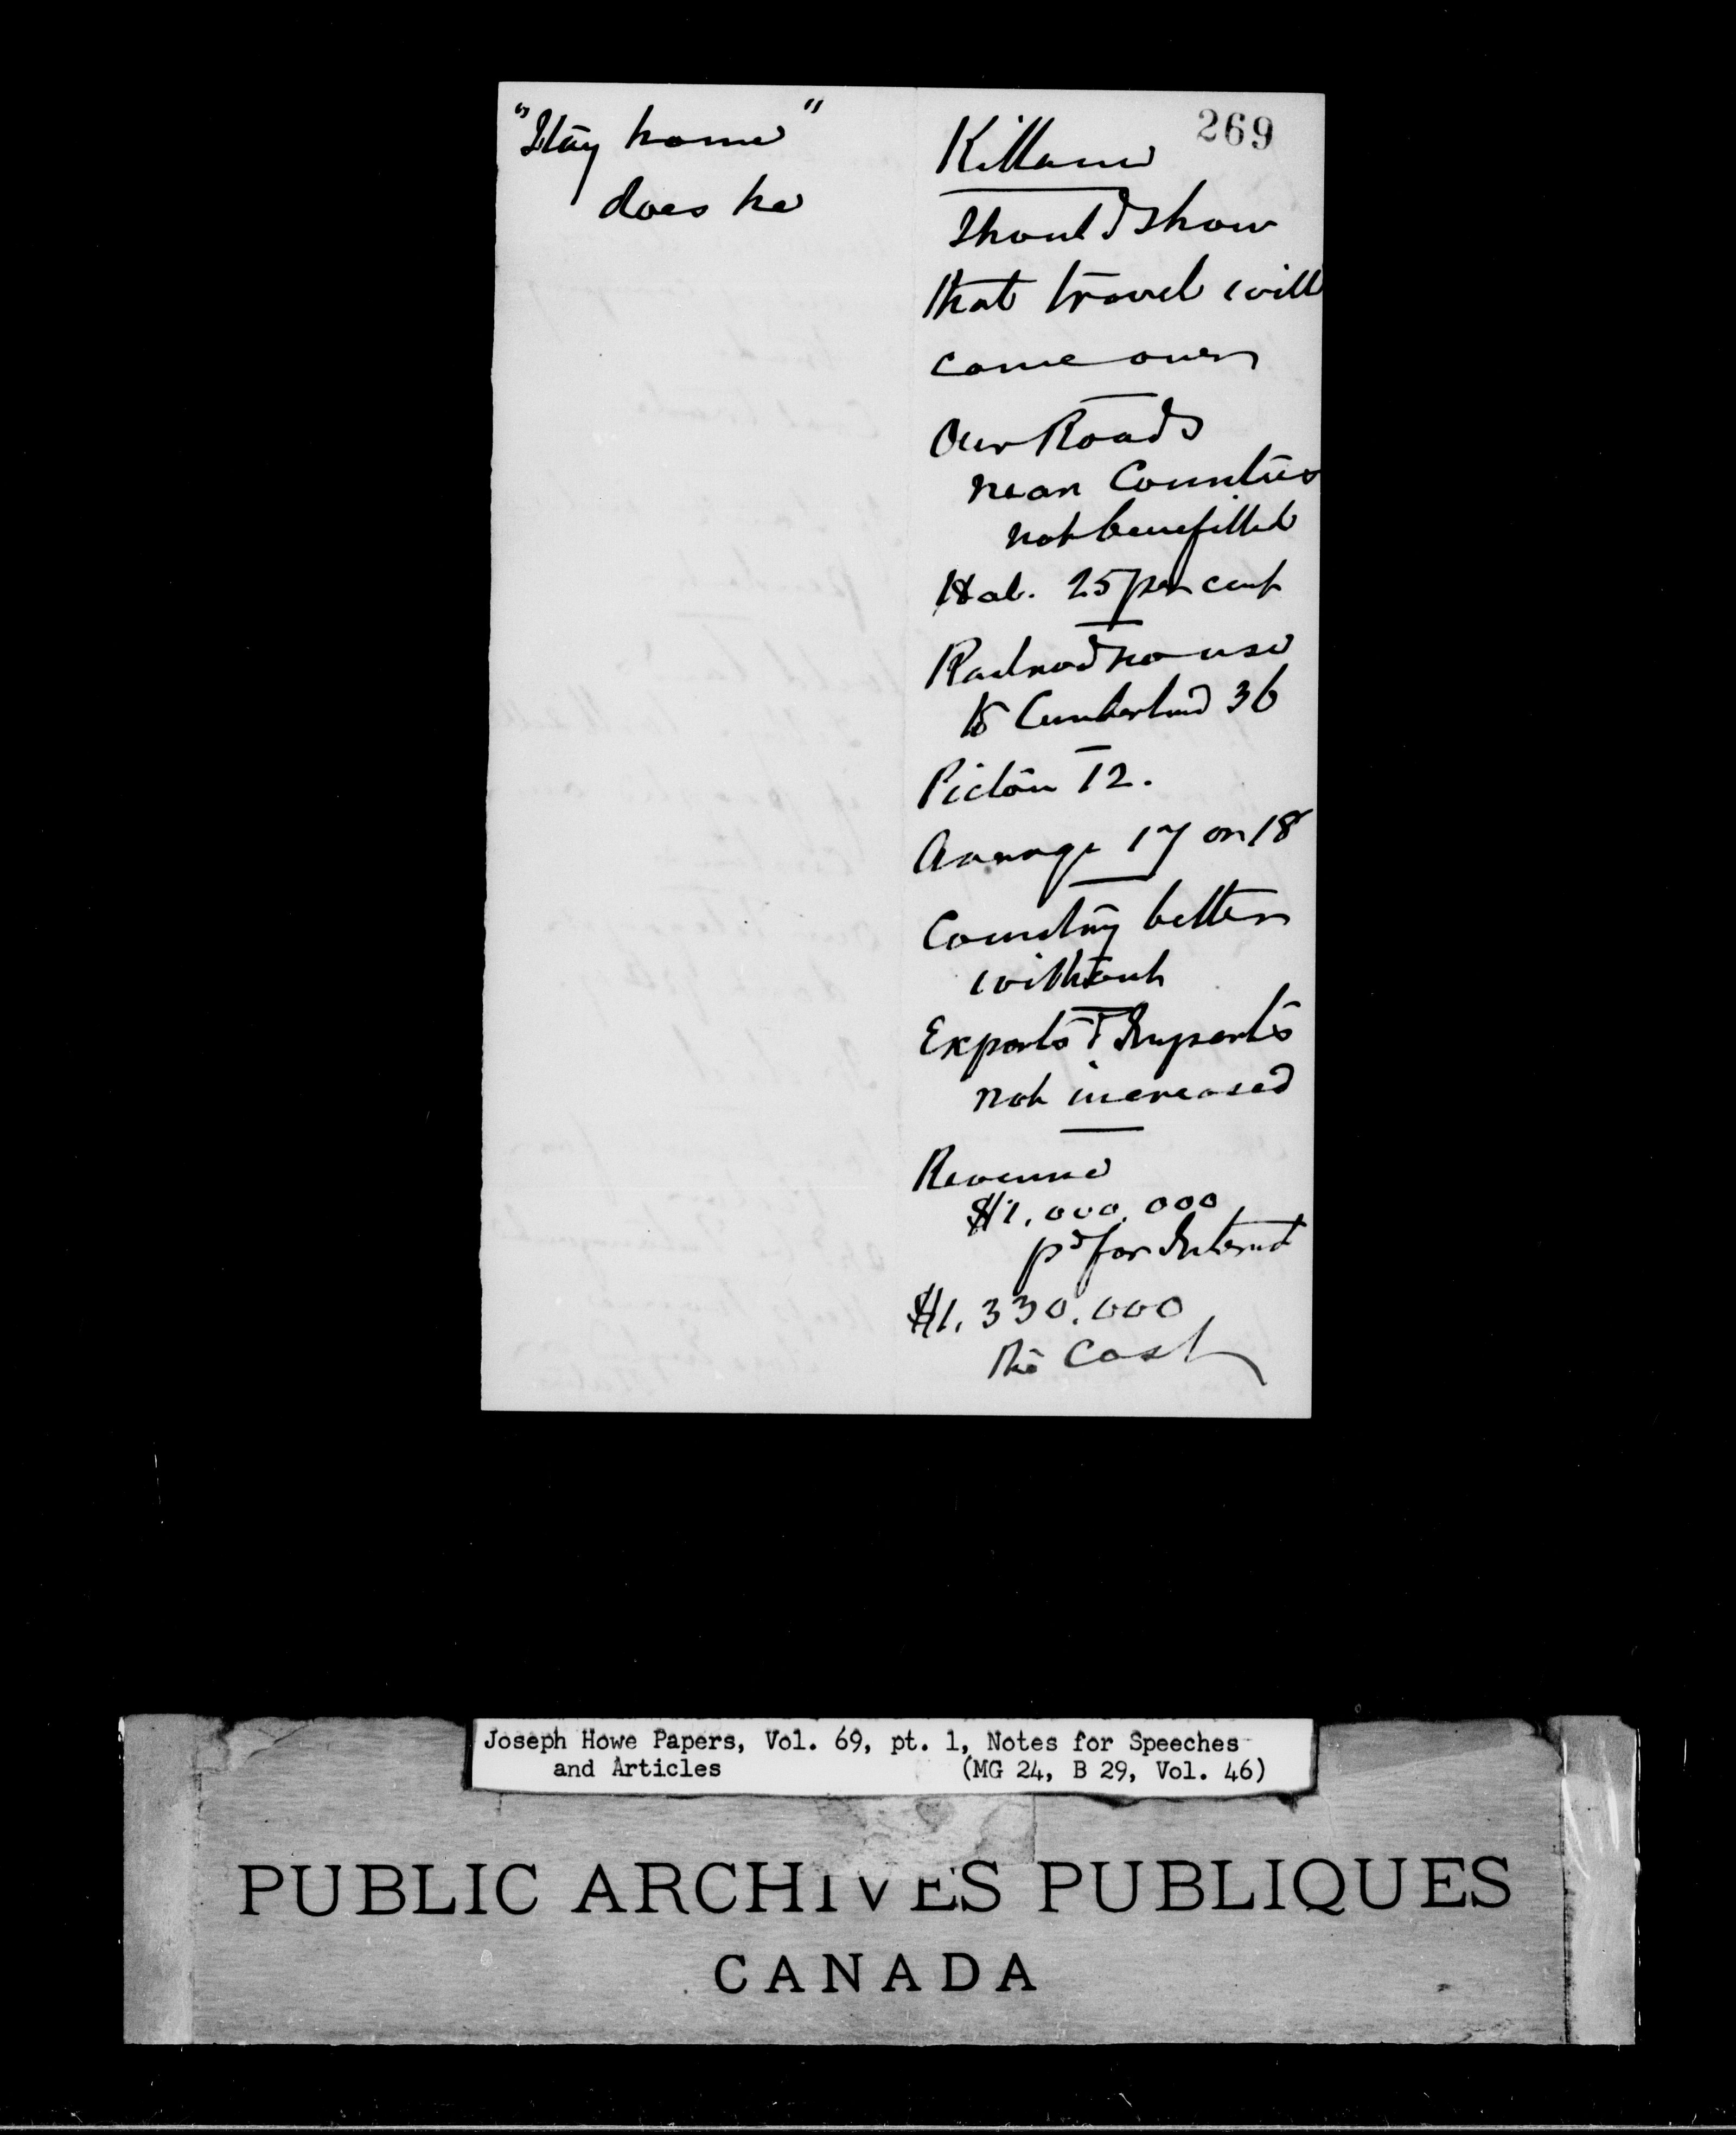 "Stay home"
does he
269
Killam
Should show
that travel will
come over
Our Roads
near Counties
not benefitted
Hal. 25 per cent
Railroad house
to Cumberland 36
Pictou 12.
Average 17 or 18
Country better
without
Exports & Imports
not increased
Revenue
$1,000,000
pd for Interest
$1,330,000
the Cost
Joseph Howe Papers, Vol. 69, pt. 1, Notes for Speeches
and Articles (MG 24, B 29, Vol. 46)
PUBLIC ARCHIVES PUBLIQUES
CANADA